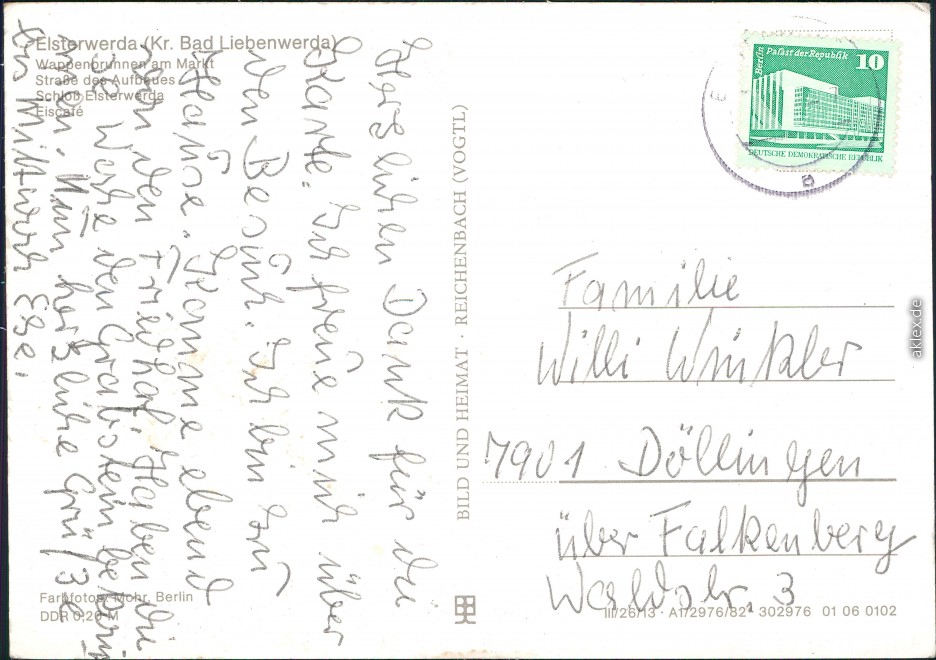 Elsterwerda (Kr. Bad Liebenwerda)
Wappenbrunnen am Markt
Straße des Aufbaues
Schloß Elsterwerda
Eiscafé
Herzlichen Dank für die
Karte. Ich freue mich über
den Besuch. Ich bin zu
Hause. Komme eben
von den Friedhof. Haben die
Woche den Grabstein bekom-
men. Nun herzliche Grüße
bis Mittwoch
BILD UND HEIMAT · REICHENBACH (VOGTL)
Berlin Palast der Republik 10
DEUTSCHE DEMOKRATISCHE REPUBLIK
a
Familie
Willi Winkler
7901 Döllingen
über Falkenberg
Waldstr. 3
Farbfotos: Mohr, Berlin
DDR 0,20 M
III/26/13 · A1/2976/82 302976 01 06 0102
aklex.de